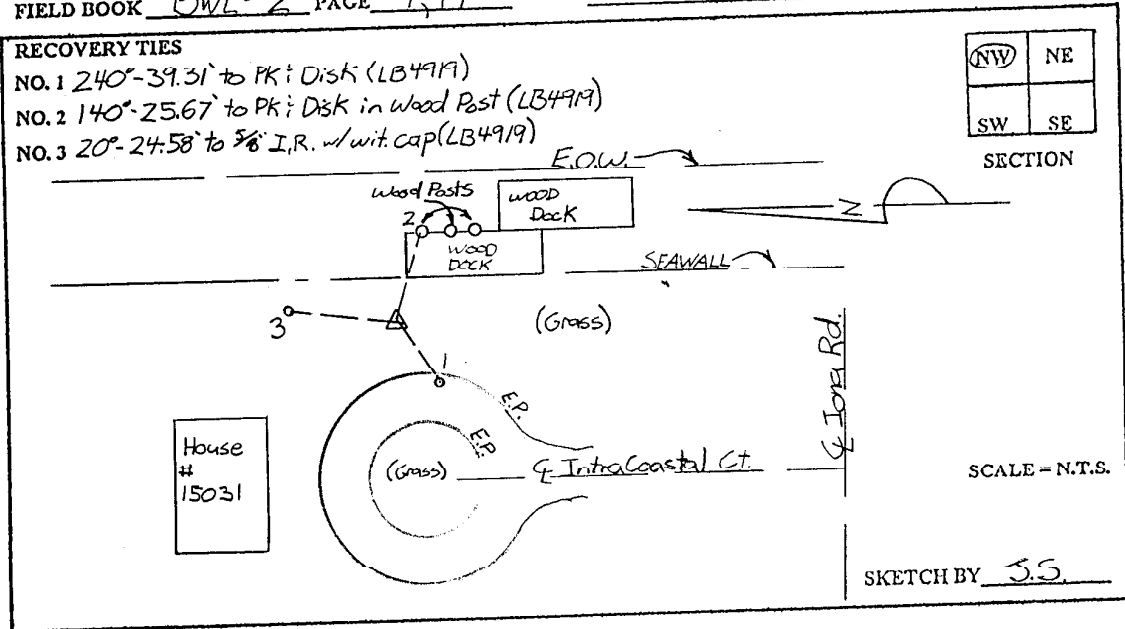 FIELD BOOK OWL-2 PAGE
RECOVERY TIES
NO. 1 240°-39.31' to PK & Disk (LB4919)
NO. 2 140°-25.67' to PK & Disk in Wood Post (LB4919)
NO. 3 20°-24.58' to 5/8" I.R. w/wit. cap (LB4919)
NW NE
SW SE
SECTION
E.O.W.
Wood Posts
WOOD
DOCK
N
2
WOOD
DOCK
SEAWALL
3
(Grass)
1
Iona Rd.
E.P.
E.P.
House
#
15031
(Grass)
℄ IntraCoastal Ct.
℄
SCALE - N.T.S.
SKETCH BY J.S.